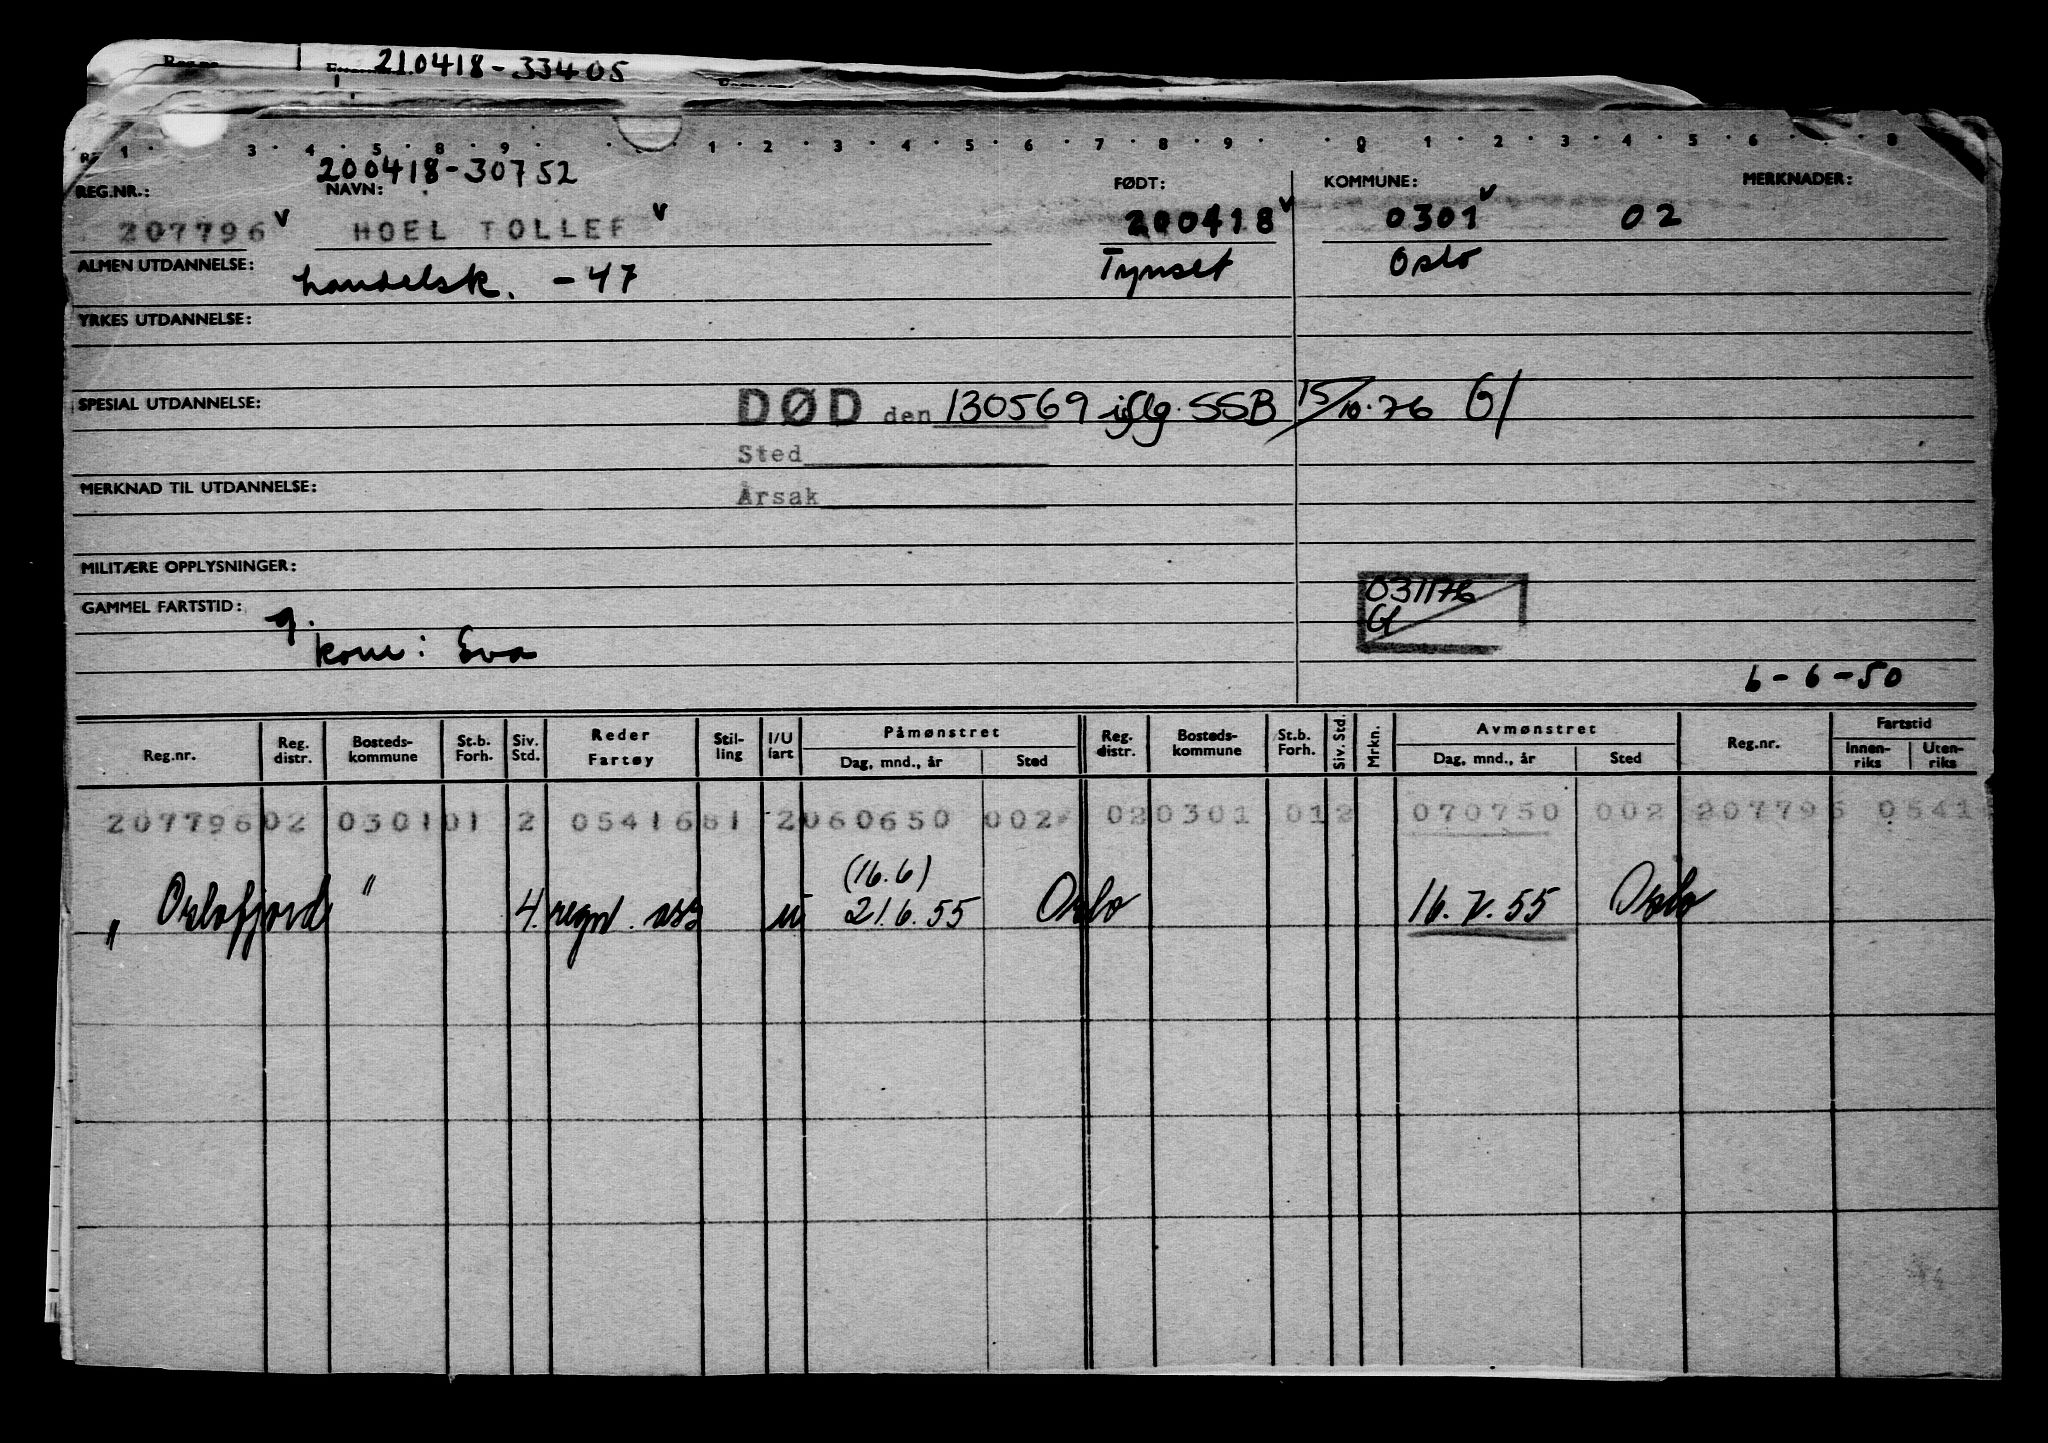 210418-33405
1 3 4 5 8 9 1 2 3 4 5 6 7 8 9 0 1 2 3 4 5 6 8
200418-30752
REG.NR.: NAVN: FØDT: KOMMUNE: MERKNADER:
207796 v HOEL TOLLEF v 200418 v 0301 v 02
ALMEN UTDANNELSE: handelsk. -47 Tynset Oslo
YRKES UTDANNELSE:
SPESIAL UTDANNELSE: DØD den 130569 iflg. SSB 15/10.76 Gl
Sted
MERKNAD TIL UTDANNELSE: Årsak
MILITÆRE OPPLYSNINGER:
031176
GAMMEL FARTSTID: g. Gl
kone: Eva
6-6-50
Reg.nr. Reg. distr. Bosteds- kommune St.b. Forh. Siv. Std. Reder Fartøy Stil- ling I/U fart Påmønstret Dag, mnd., år Sted Reg. distr. Bosteds- kommune St.b. Forh. Siv. Std. Mrkn. Avmønstret Dag, mnd., år Sted Reg.nr. Fartstid Innen- riks Uten- riks
207796 02 0301 01 2 05416 81 2 060650 002 02 0301 01 2 070750 002 207796 0541
(16.6)
" Oslofjord " 4. regnf. ass u 21.6.55 Oslo 16.7.55 Oslo